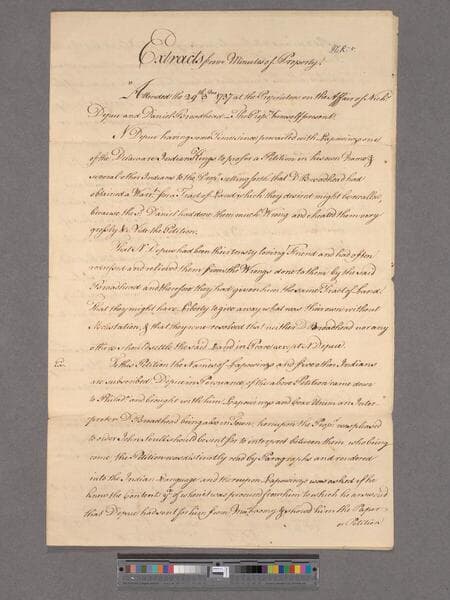 Extracts from Minutes of Property.
"Attended the 29th 8ber 1737 at the Proprietors on the Affair of Nichs
Depue and Daniel Broadhead — The Prop. Thomas present
N Depue having some Time since prevailed with Lapowings one
of the Delaware Indian Kings to prefer a Petition in his own Name &
several other Indians to the Propr. setting forth that D Broadhead had
obtained a Warrt. for a Tract of Land which they desired might be recalled,
because the sd. Daniel had done them much Wrong and cheated them very
grossly & Vide the Petition.
That N Depue had been their trusty loving Friend and had often
and relieved them from the Wrongs done to them by the said
Broadhead and therefore they had given him the same Tract of Land.
That they might have Liberty to give away what was their own without
Molestation, & that they were resolved that neither D Broadhead nor any
other should settle the said Land in Peace except N Depue.
To this Petition the Names of Lapowings and five other Indians
are subscribed. Depue in Pursuance of the above Petition came down
to Philada. and brought with him Lapowings and an Inter-
preter D Broadhead being also in Town, hereupon the Propr. was pleased
to order John Scull should be sent for to interpret between them who being
come the Petition was distinctly read by Paragraphs and rendered
into the Indian Language and thereupon Lapowings was asked if he
knew the Contents of which was procured from him to which he answered
that Depue had sent for him from and shewed him the Paper
or Petition